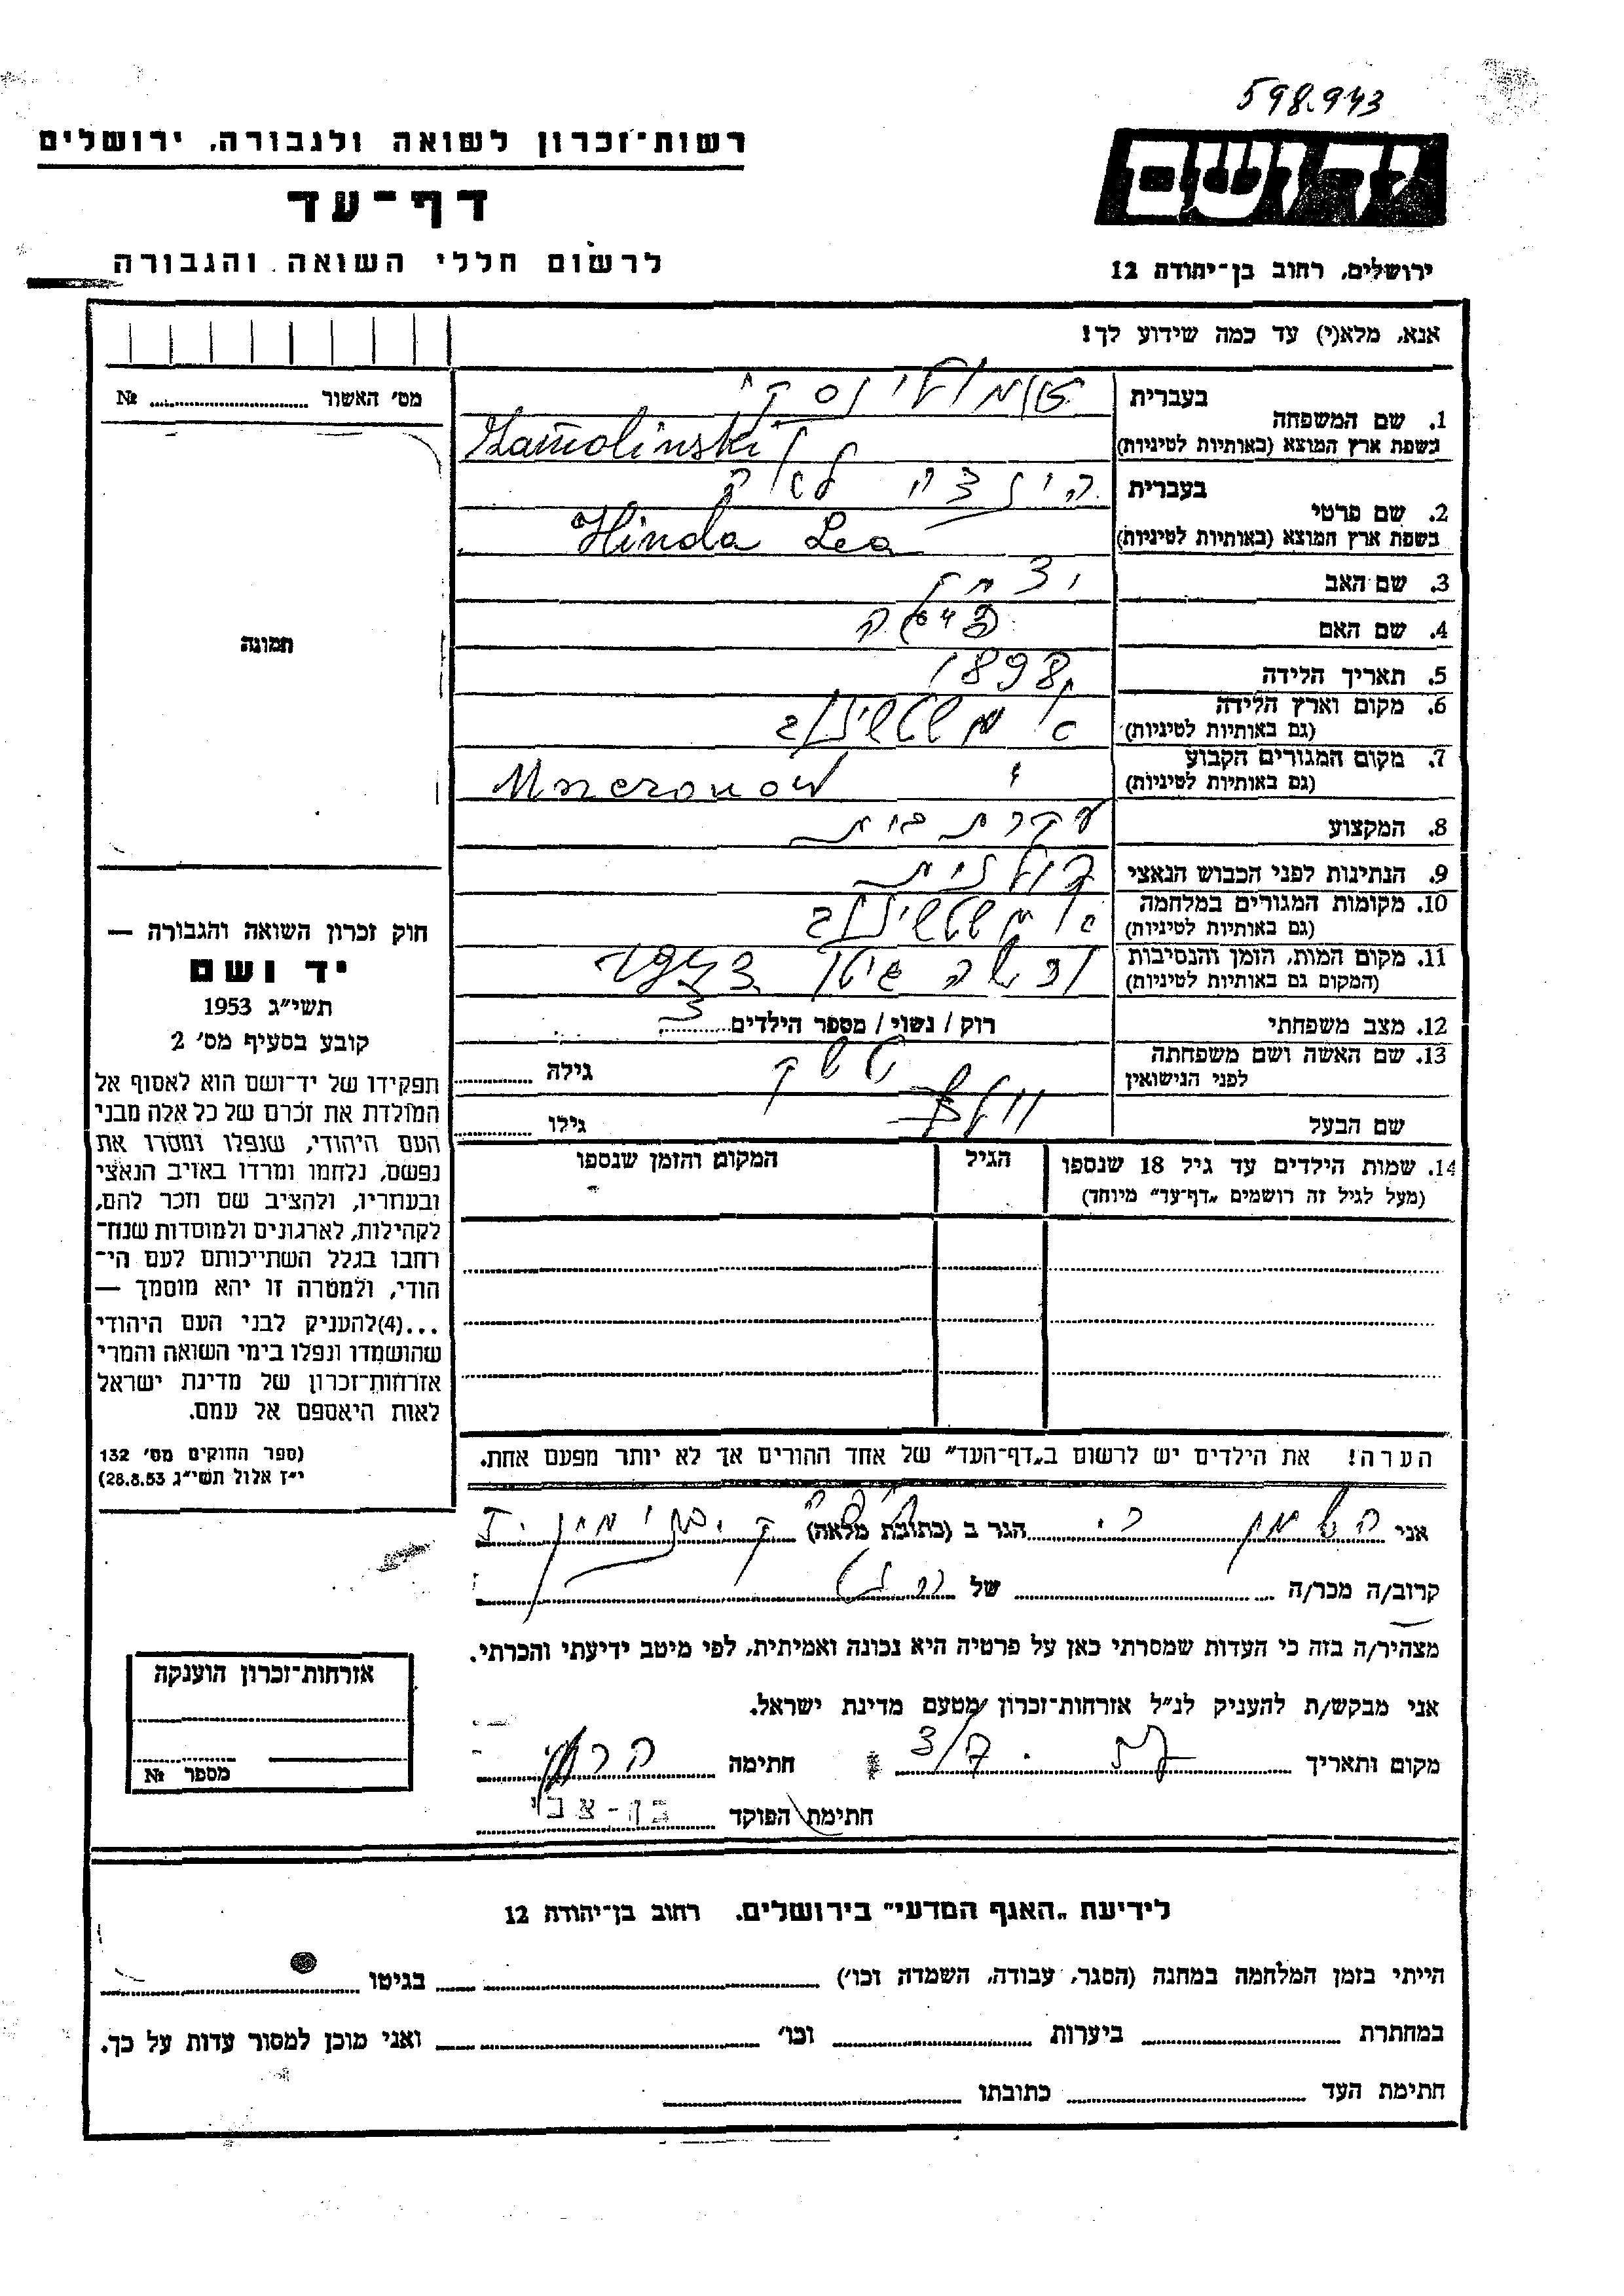 598.943
רשות־זכרון לשואה ולגבורה, ירושלים
דף־עד
לרשום חללי השואה והגבורה
יד ושם
ירושלים, רחוב בן־יהודה 12
אנא, מלא(י) עד כמה שידוע לך!
מס׳ האשור № 
1. שם המשפחה בעברית
בשפת ארץ המוצא (באותיות לטיניות)
2. שם פרטי בעברית הינדה לאה
בשפת ארץ המוצא (באותיות לטיניות) Hinda Lea
3. שם האב
4. שם האם
5. תאריך הלידה 1898
6. מקום וארץ הלידה
(גם באותיות לטיניות)
7. מקום המגורים הקבוע
(גם באותיות לטיניות)
8. המקצוע עקרת בית
9. הנתינות לפני הכבוש הנאצי פולנית
10. מקומות המגורים במלחמה
(גם באותיות לטיניות)
11. מקום המות, הזמן והנסיבות
(המקום גם באותיות לטיניות)
12. מצב משפחתי רוק / נשוי / מספר הילדים 3
13. שם האשה ושם משפחתה
לפני הנישואין גילה
שם הבעל גילו
14. שמות הילדים עד גיל 18 שנספו הגיל המקום והזמן שנספו
(מעל לגיל זה רושמים „דף־עד״ מיוחד)
הערה! את הילדים יש לרשום ב„דף־העד״ של אחד ההורים אך לא יותר מפעם אחת.
תמונה
חוק זכרון השואה והגבורה —
יד ושם
תשי״ג 1953
קובע בסעיף מס׳ 2
תפקידו של יד־ושם הוא לאסוף אל
המולדת את זכרם של כל אלה מבני
העם היהודי, שנפלו ומסרו את
נפשם, נלחמו ומרדו באויב הנאצי
ובעוזריו, ולהציב שם וזכר להם,
לקהילות, לארגונים ולמוסדות שנח־
רחבו בגלל השתייכותם לעם הי־
הודי, ולמטרה זו יהא מוסמך —
...(4)להעניק לבני העם היהודי
שהושמדו ונפלו בימי השואה והמרי
אזרחות־זכרון של מדינת ישראל
לאות היאספם אל עמם.
(ספר החוקים מס׳ 132
י״ז אלול תשי״ג 28.8.53)
אני הגר ב (כתובת מלאה)
קרוב/ה מכר/ה של
מצהיר/ה בזה כי העדות שמסרתי כאן על פרטיה היא נכונה ואמיתית, לפי מיטב ידיעתי והכרתי.
אני מבקש/ת להעניק לנ״ל אזרחות־זכרון מטעם מדינת ישראל.
מקום ותאריך חתימה
חתימת הפוקד בן-צבי
אזרחות־זכרון הוענקה
מספר №
לידיעת „האגף המדעי״ בירושלים, רחוב בן־יהודה 12
הייתי בזמן המלחמה במחנה (הסגר, עבודה, השמדה וכו׳) בגיטו
במחתרת ביערות וכו׳ ואני מוכן למסור עדות על כך.
חתימת העד כתובתו